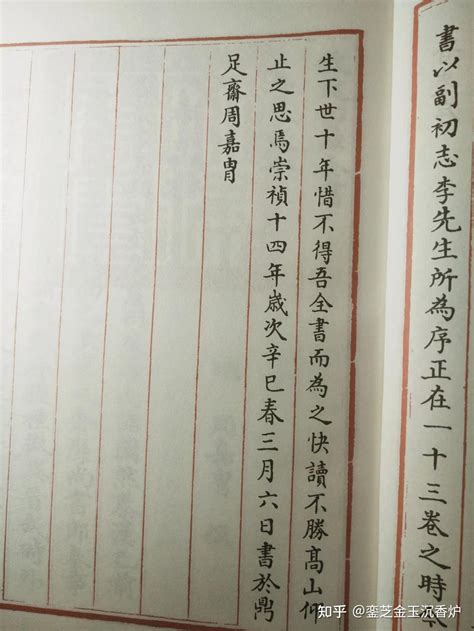 書以副初志李先生所為序正在一十三卷之時今
生下世十年惜不得吾全書而為之快讀不勝高山仰
止之思焉崇禎十四年歲次辛巳春三月六日書於鼎
足齋周嘉冑
知乎 @銮芝金玉沉香炉